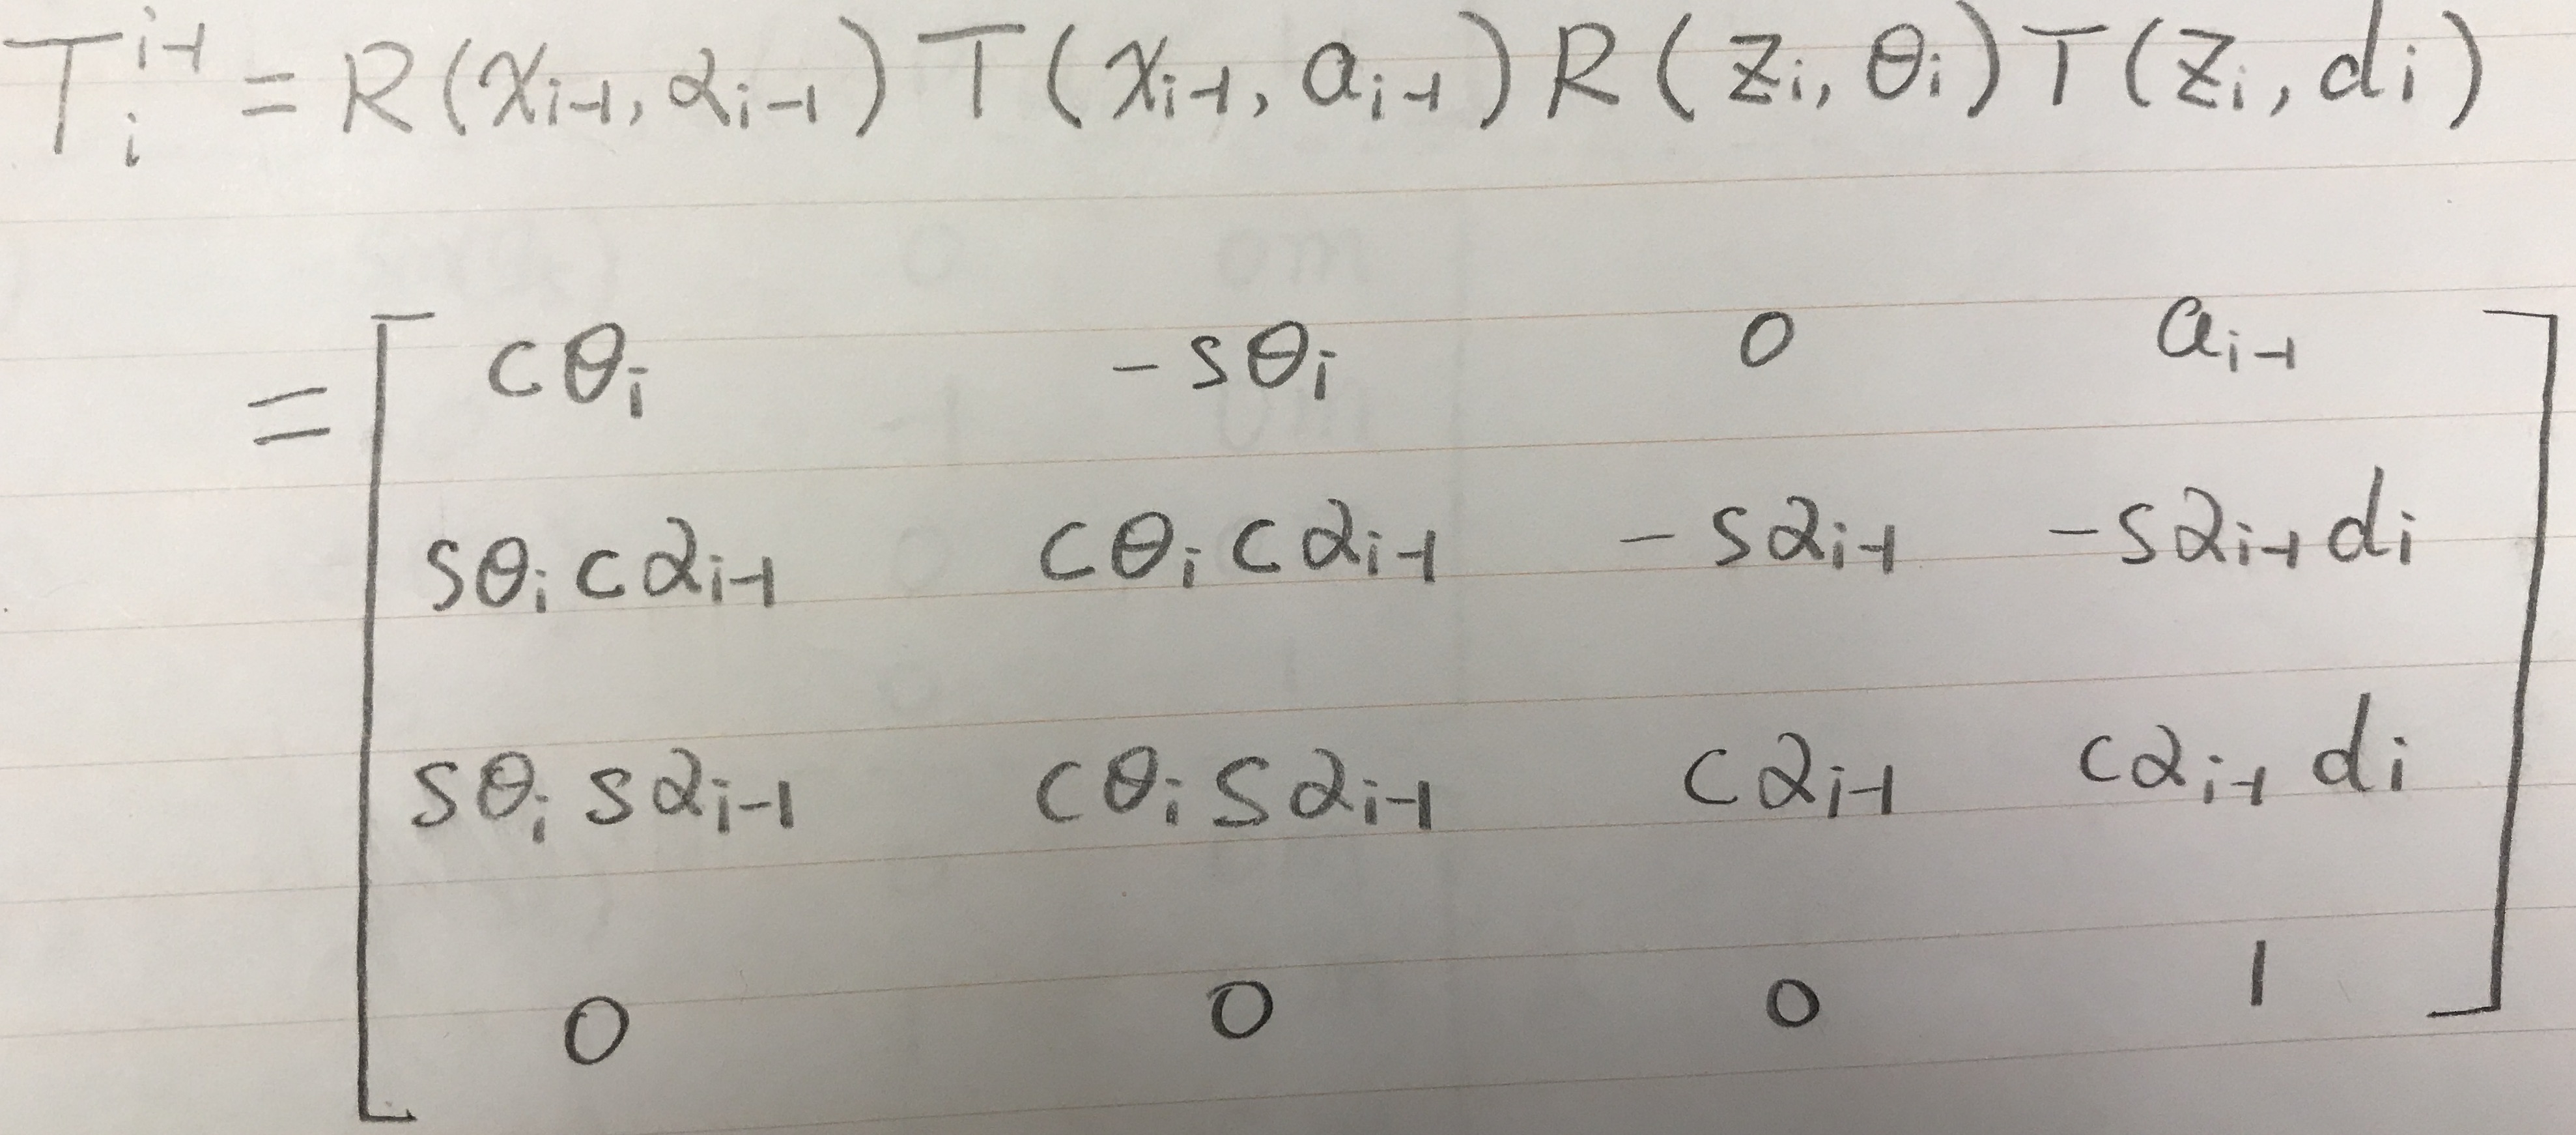 T_i^{i-1} = R(x_{i-1}, α_{i-1}) T(x_{i-1}, a_{i-1}) R(z_i, θ_i) T(z_i, d_i)
= [ cθ_i   -sθ_i   0   a_{i-1}
sθ_i cα_{i-1}   cθ_i cα_{i-1}   -sα_{i-1}   -sα_{i-1} d_i
sθ_i sα_{i-1}   cθ_i sα_{i-1}   cα_{i-1}   cα_{i-1} d_i
0   0   0   1 ]